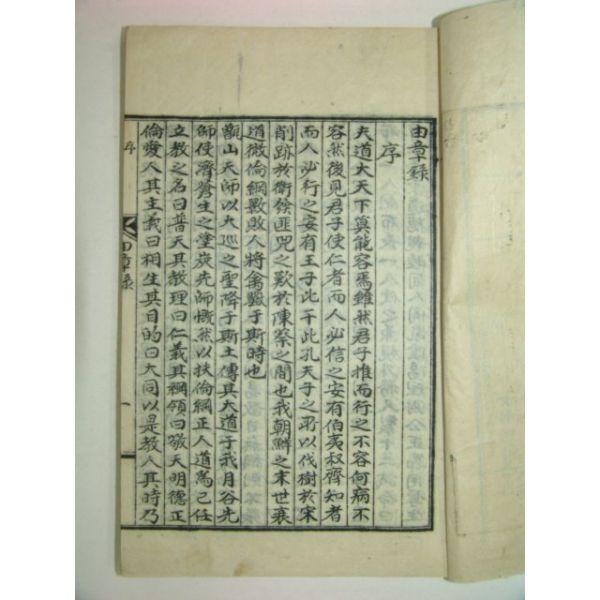 由章錄
序
夫道大天下莫能容焉雖然君子推而行之不容何病不
容然後見君子使仁者而人必信之安有伯夷叔齊知者
而人必行之安有王子比干此孔夫子之所以伐樹於宋
削跡於衛餘匪兕之歎於陳蔡之間也我朝鮮之末世衰
道微倫綱斁敗人將禽獸于斯時也
甑山天師以大巡之聖降于斯土傳其大道于我月谷先
師使濟蒼生之塗炭先師慨然以扶倫綱正人道爲己任
立教之名曰普天其教理曰仁義其綱領曰敬天明德正
倫愛人其主義曰相生其目的曰大同以是教人其時乃
序
由章錄
一